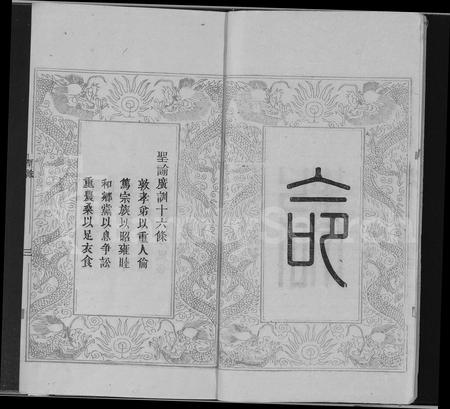 命
聖諭廣訓十六條
敦孝弟以重人倫
篤宗族以昭雍睦
和鄉黨以息爭訟
重農桑以足衣食